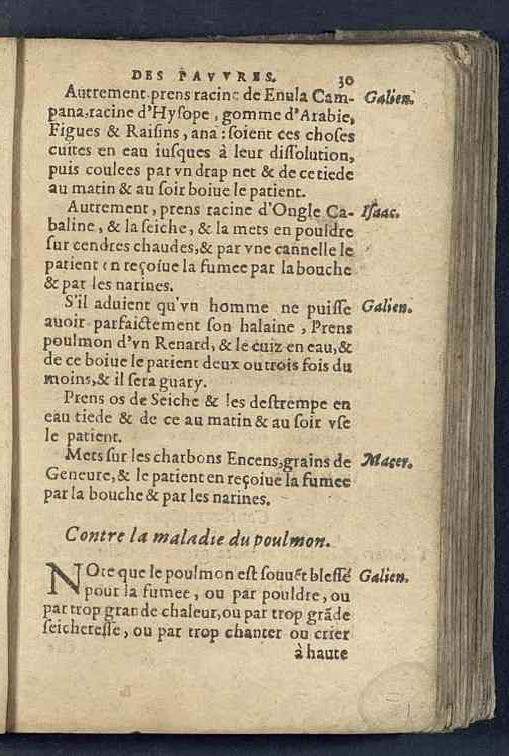 DES PAVVRES. 30
Autrement prens racine de Enula Cam- Galien.
pana, racine d'Hysope, gomme d'Arabie,
Figues & Raisins, ana : soient ces choses
cuites en eau iusques à leur dissolution,
puis coulees par vn drap net & de ce tiede
au matin & au soir boiue le patient.
Autrement, prens racine d'Ongle Ca- Isaac.
baline, & la seiche, & la mets en pouldre
sur cendres chaudes, & par vne cannelle le
patient en reçoiue la fumee par la bouche
& par les narines.
S'il aduient qu'vn homme ne puisse Galien.
auoir parfaictement son halaine, Prens
poulmon d'vn Renard, & le cuiz en eau, &
de ce boiue le patient deux ou trois fois du
moins, & il sera guary.
Prens os de Seiche & les destrempe en
eau tiede & de ce au matin & au soir vse
le patient.
Mets sur les charbons Encens, grains de Macer.
Geneure, & le patient en reçoiue la fumee
par la bouche & par les narines.
Contre la maladie du poulmon.
NOte que le poulmon est souuēt blessé Galien.
pour la fumee, ou par pouldre, ou
par trop grande chaleur, ou par trop grāde
seicheresse, ou par trop chanter ou crier
à haute